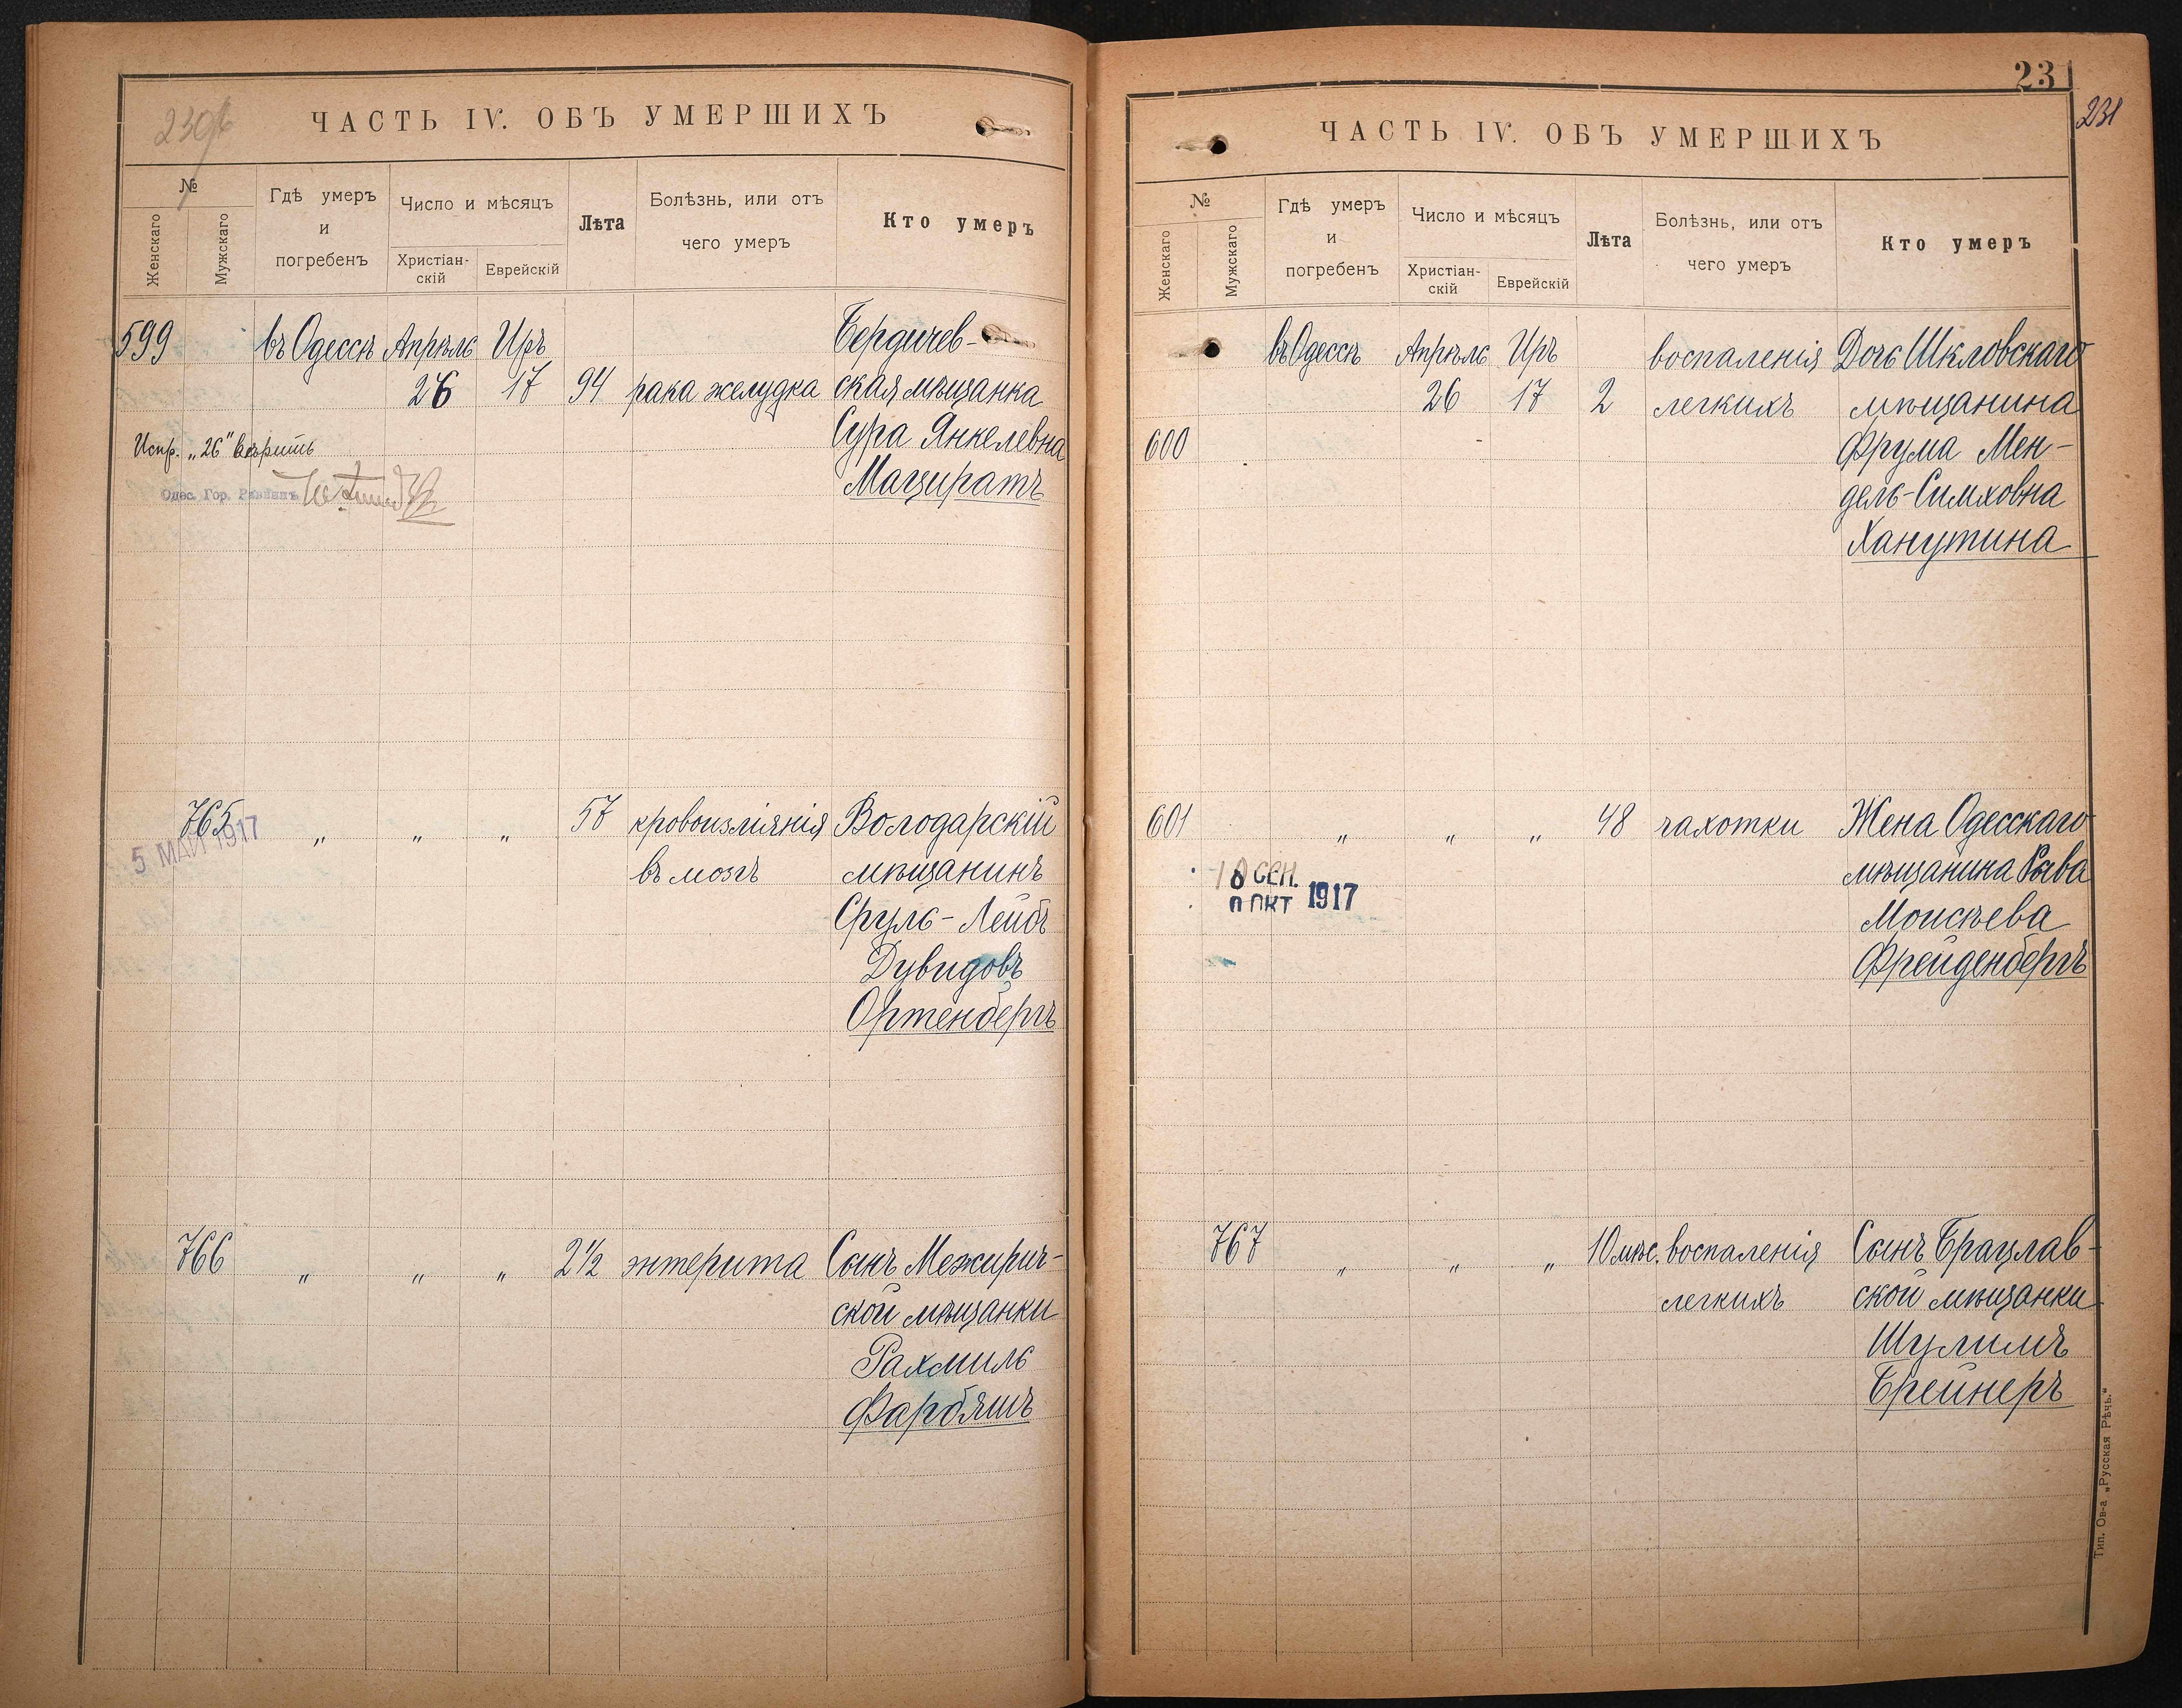 230/б
ЧАСТЬ IV. ОБЪ УМЕРШИХЪ
№
Женскаго
Мужскаго
Гдѣ умеръ
и
погребенъ
Число и мѣсяцъ
Христіан-
скій
Еврейскій
Лѣта
Болѣзнь, или отъ
чего умеръ
Кто умеръ
599 въ Одессѣ Апрѣль Иръ Бердичев-
26 17 94 рака желудка ская мѣщанка
Сура Янкелевна
Мацератъ
Испр. „26" вѣрить
Одес. Гор. Раввинъ
765 „ „ „ 57 кровоизліянія Володарскій
5 МАЙ 1917
въ мозгъ мѣщанинъ
Сруль-Лейбъ
Дувидовъ
Ортенбергъ
766 „ „ „ 2½ энтерита Сынъ Межирич-
ской мѣщанки
Рахмиль
Фарбяшъ
23
231
ЧАСТЬ IV. ОБЪ УМЕРШИХЪ
№
Женскаго
Мужскаго
Гдѣ умеръ
и
погребенъ
Число и мѣсяцъ
Христіан-
скій
Еврейскій
Лѣта
Болѣзнь, или отъ
чего умеръ
Кто умеръ
въ Одессѣ Апрѣль Иръ воспаленія Дочь Шкловскаго
26 17 2 легкихъ мѣщанина
600 Фрума Мен-
дель-Симховна
Ханутина
601 „ „ „ 48 чахотки Жена Одесскаго
мѣщанина Рива
СЕН.
ОКТ 1917
Моисѣева
Фрейденбергъ
767 „ „ „ 10 мѣс. воспаленія Сынъ Брацлав-
легкихъ ской мѣщанки
Шулимъ
Брейнеръ
Тип. Ов-а „Русская Рѣчь."